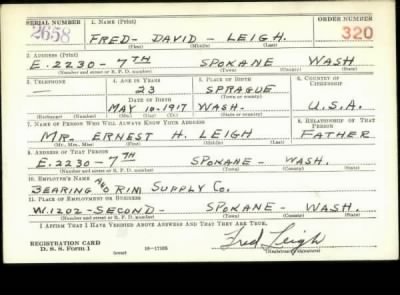 SERIAL NUMBER 1. NAME (Print) ORDER NUMBER
2658 FRED - DAVID - LEIGH. 320
(First) (Middle) (Last)
2. ADDRESS (Print)
E. 2230 - 7TH SPOKANE WASH
(Number and street or R. F. D. number) (Town) (County) (State)
3. TELEPHONE 4. AGE IN YEARS 5. PLACE OF BIRTH 6. COUNTRY OF CITIZENSHIP
— 23 SPRAGUE
DATE OF BIRTH (Town or county)
MAY 10-1917 WASH. U.S.A.
(Exchange) (Number) (Mo.) (Day) (Yr.) (State or country)
7. NAME OF PERSON WHO WILL ALWAYS KNOW YOUR ADDRESS 8. RELATIONSHIP OF THAT PERSON
MR. ERNEST H. LEIGH FATHER
(Mr., Mrs., Miss) (First) (Middle) (Last)
9. ADDRESS OF THAT PERSON
E. 2230 - 7TH SPOKANE - WASH.
(Number and street or R. F. D. number) (Town) (County) (State)
10. EMPLOYER'S NAME
BEARING AND RIM SUPPLY CO.
11. PLACE OF EMPLOYMENT OR BUSINESS
W. 1202 - SECOND - SPOKANE - WASH.
(Number and street or R. F. D. number) (Town) (County) (State)
I AFFIRM THAT I HAVE VERIFIED ABOVE ANSWERS AND THAT THEY ARE TRUE.
Fred Leigh
REGISTRATION CARD
D. S. S. Form 1 (Registrant's signature)